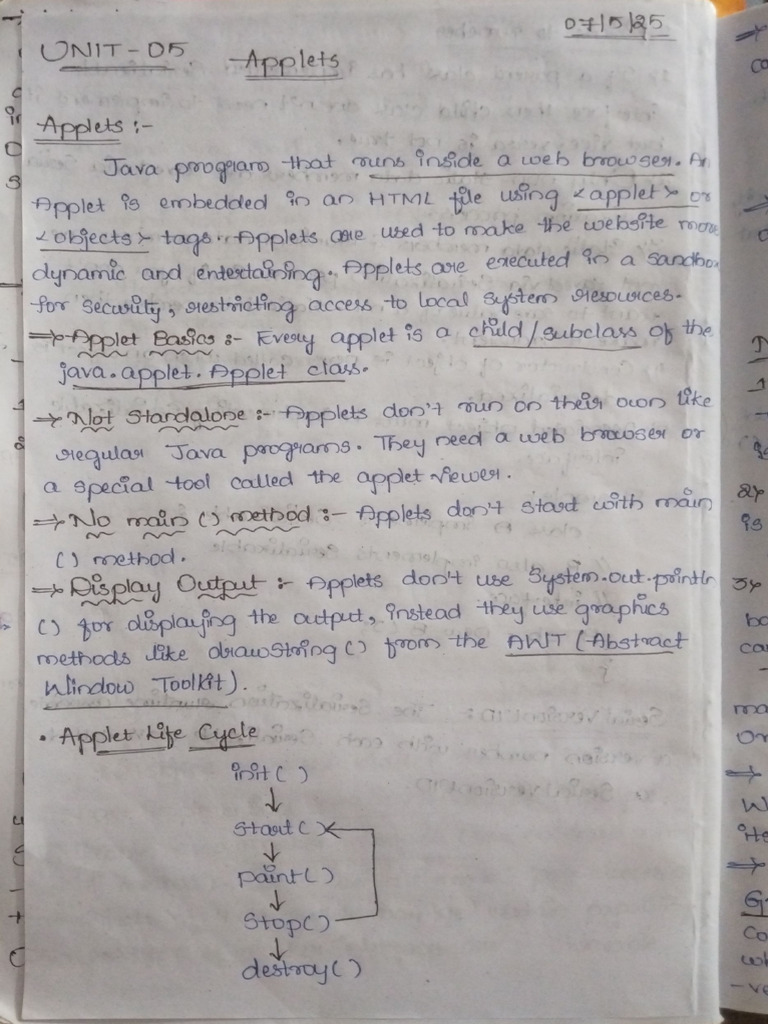 07/5/25
UNIT-05. Applets
Applets :-
Java program that runs inside a web browser. An
Applet is embedded in an HTML file using <applet> or
<objects> tags. Applets are used to make the website more
dynamic and entertaining. Applets are executed in a sandbox
for security, restricting access to local system resources.
⇒ Applet Basics :- Every applet is a child/subclass of the
java.applet.Applet class.
⇒ Not Standalone :- Applets don't run on their own like
regular Java programs. They need a web browser or
a special tool called the applet viewer.
⇒ No main () method :- Applets don't start with main
() method.
⇒ Display Output :- Applets don't use System.out.println
() for displaying the output, instead they use graphics
methods like drawString () from the AWT (Abstract
Window Toolkit).
• Applet Life Cycle
init ( )
↓
start ( )
↓
paint ( )
↓
stop ( )
↓
destroy ( )